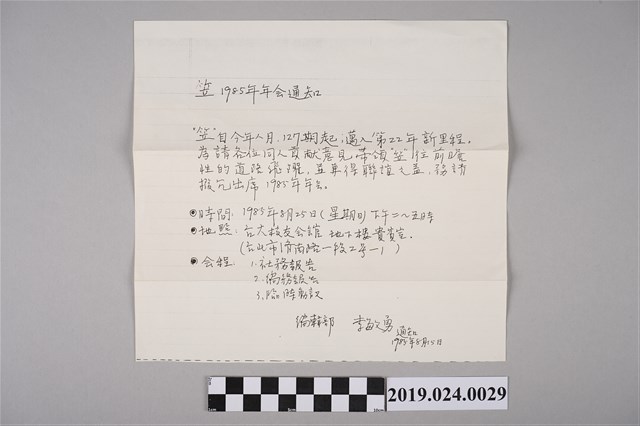 笠 1985年年会通知
"笠"自今年6月,127期起,邁入第22年新里程。
為請各位同人貢献意見,帶領"笠"往前瞻
性的道路飛躍,並兼得聯誼之益,務請
撥冗出席1985年年会。
●時間:1985年8月25日(星期日)下午二~五時
●地點:台大校友会館 地下樓貴賓室.
(台北市濟南路一段2号-1)
●会程:1.社務報告
2.編務報告
3.臨時動議
編輯部 李敏勇
通知
1985年8月15日
2019.024.0029